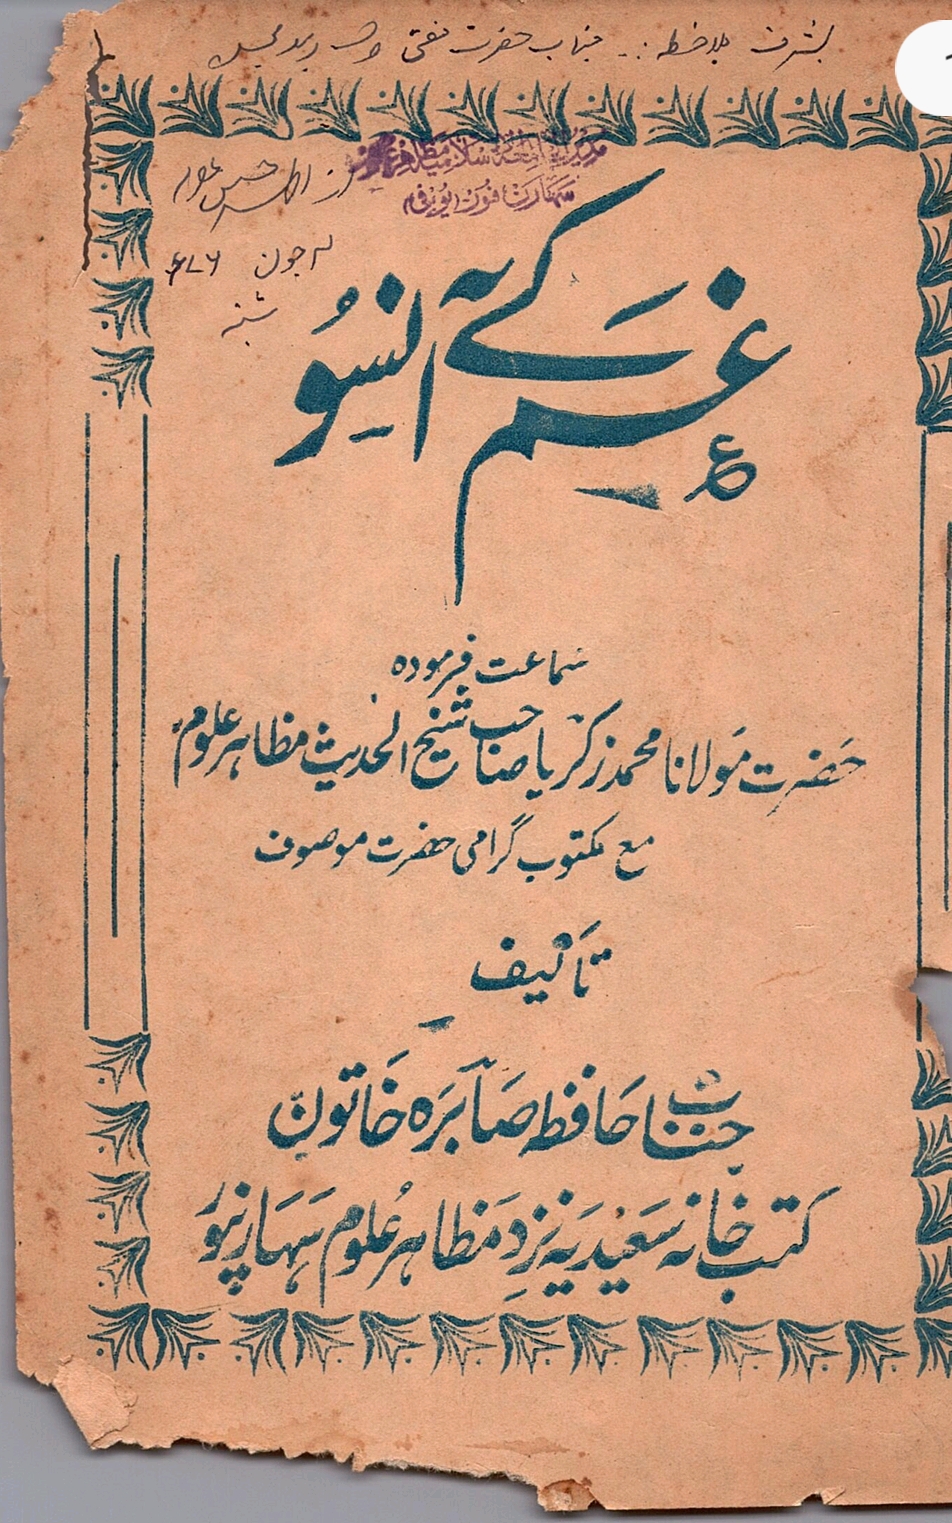 بشرف ملاحظہ :۔ جناب حضرت مفتی
جون ۷۶ء
شنبہ
غم کے آنسو
سماعت فرمودہ
حضرت مولانا محمد زکریا صاحب شیخ الحدیث مظاہر علوم
مع مکتوب گرامی حضرت موصوف
تالیف
جناب حافظہ صابرہ خاتون
کتب خانہ سعیدیہ نزد مظاہر علوم سہارنپور